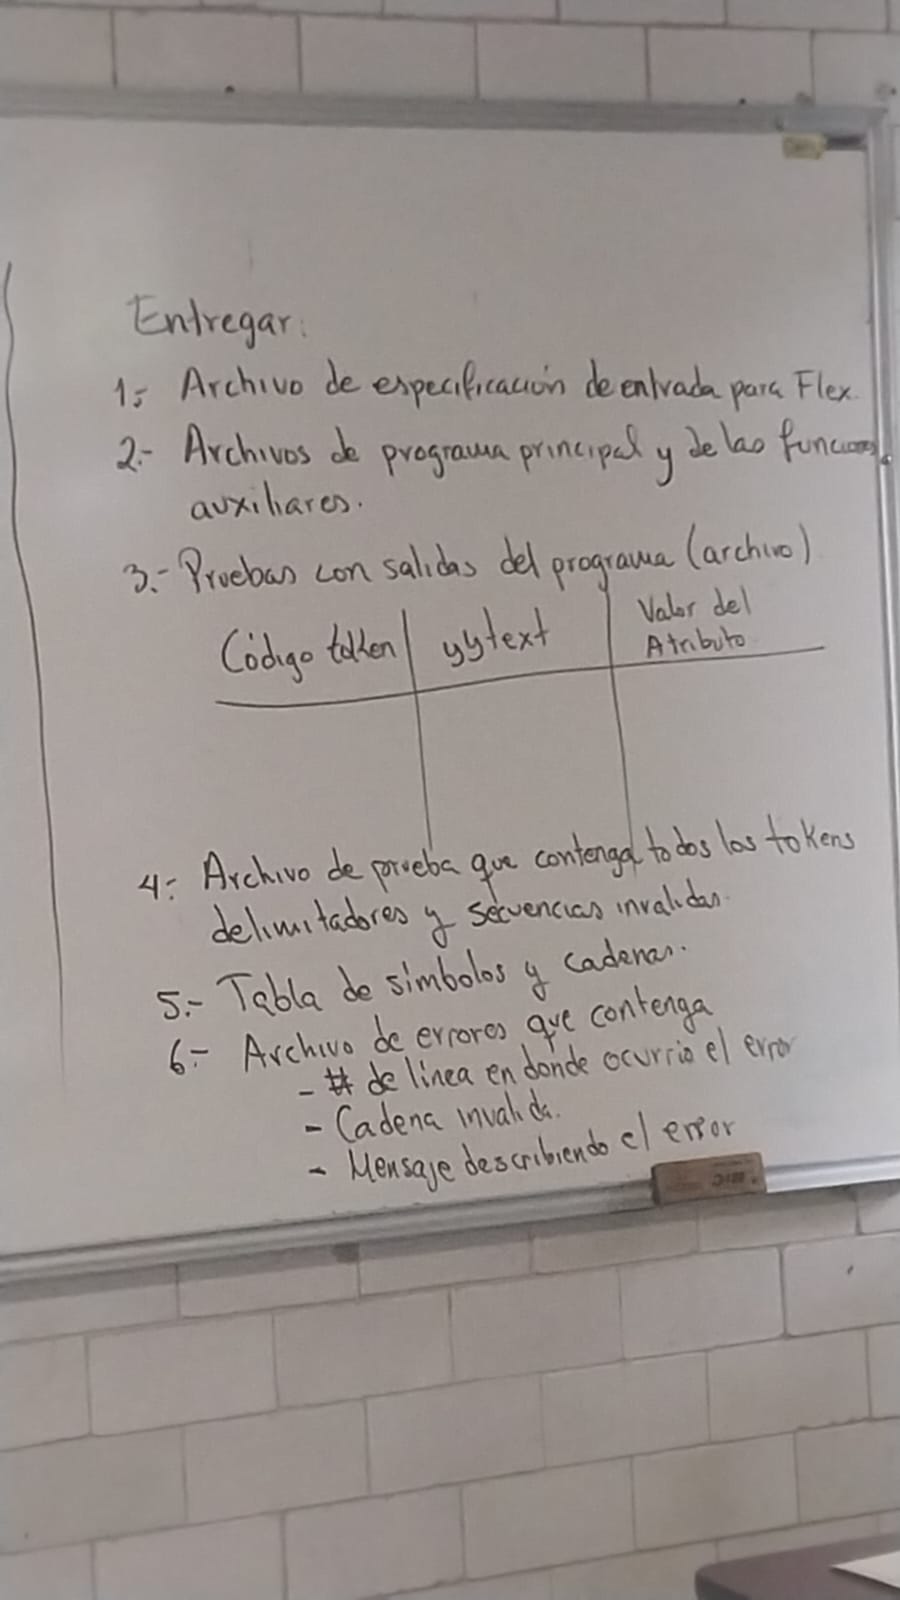 Entregar:
1.- Archivo de especificación de entrada para Flex.
2.- Archivos de programa principal y de las funciones
auxiliares.
3.- Pruebas con salidas del programa (archivo)
Código token | yytext | Valor del
Atributo
4.- Archivo de prueba que contenga todos los tokens
delimitadores y secuencias invalidas.
5.- Tabla de simbolos y cadenas.
6.- Archivo de errores que contenga
- # de linea en donde ocurrio el error
- Cadena invalida.
- Mensaje describiendo el error
BIC